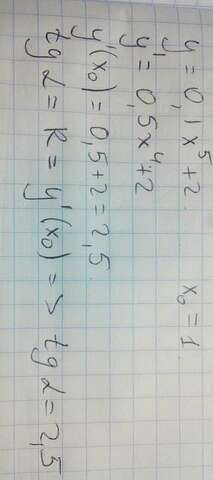 y = 0,1x⁵+2. x₀ = 1.
y' = 0,5x⁴+2
y'(x₀) = 0,5+2 = 2,5.
tg α = k = y'(x₀) => tg α = 2,5